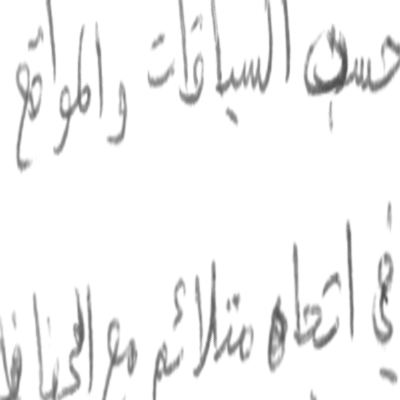 حسب السياقات والمواقع
في اتجاه متلائم مع الحفاظ